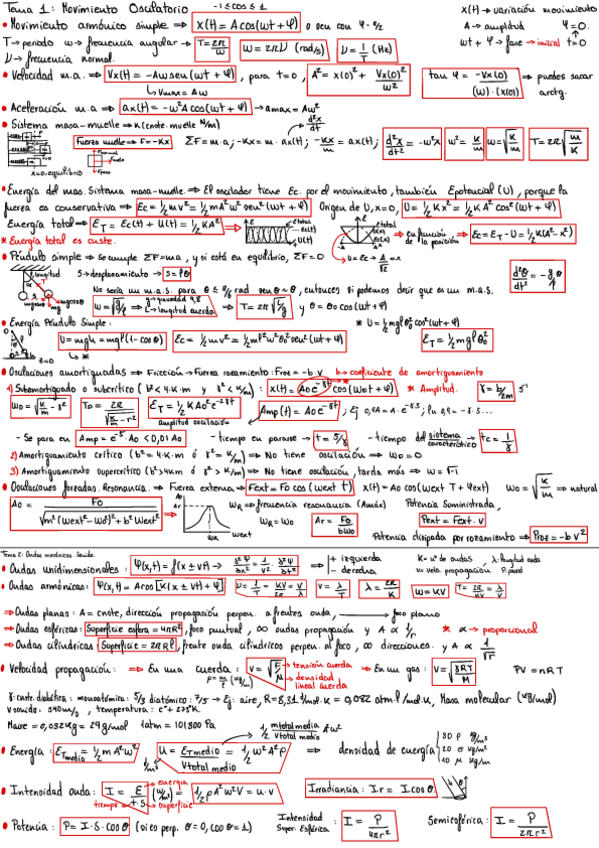 Tema 1: Movimiento Osulatorio -1≤cos≤1
X(t)→variación movimiento
• Movimiento armónico simple ⇒ X(t) = A cos(wt + φ) o seu con φ - π/2
A→amplitud φ=0.
T→periodo w→frecuencia angular→ T=2π/w w = 2πν (rad/s) ν = 1/T (Hz)
wt + φ → fase → inicial t=0
ν→ frecuencia normal.
• Velocidad m.a. ⇒ Vx(t) = -Aw seu(wt + φ), para t=0, A² = x(0)² + Vx(0)²/w² tan φ = -Vx(0)/(w)·(x(0)) ⇒ puedes sacar arctg.
↳Vmax = Aw
• Aceleración m.a ⇒ ax(t) = -w²A cos(wt + φ) → amax = Aw²
• Sistema masa-muelle ⇒ K (cnste. muelle N/m)
Fuerza muelle ⇒ F=-Kx ΣF = m·a; -Kx = m·ax(t); -Kx/m = ax(t); d²x/dt² = -w²x w² = K/m w=√K/m T=2π√m/K
d²x/dt²
x=0.equilibrio
• Energía del mas. Sistema masa-muelle. ⇒ El oscilador tiene Ec. por el movimiento, también Epotencial (U), porque la
fuerza es conservativa ⇒ Ec = 1/2 mv² = 1/2 mA²w² seu²(wt + φ) Origen de U, x=0, U = 1/2 Kx² = 1/2 KA² cos²(wt + φ)
Energía total ⇒ ET = Ec(t) + U(t) = 1/2 KA² ⇒ en función de la posición ⇒ Ec = ET - U = 1/2 K(A² - x²)
* Energía total es cnste.
• Péndulo simple ⇒ Se cumple ΣF=ma, y si está en equilibrio, ΣF=0
longitud S→desplazamiento → S = ℓθ d²θ/dt² = -g/ℓ θ
No sería un m.a.s. para θ ≤ rad seu θ ≈ θ, entonces si podemos decir que es un m.a.s.
w = √g/ℓ ⇒ g→gravedad 9,8 L→longitud cuerda ⇒ T = 2π√L/g y θ = θ0 cos(wt + φ)
• Energía Péndulo Simple:
* U = 1/2 mgℓ θ0² cos²(wt + φ)
U = mgh = mgℓ(1 - cos θ) Ec = 1/2 mv² = 1/2 mℓ²w²θ0² seu²(wt + φ) ET = 1/2 mgℓ θ0²
• Osulaciones amortiguadas ⇒ Fricción → Fuerza rozamiento: Froz = -b·v b→ coeficiente de amortiguamiento
1) Subamortiguado o subcrítico (b² < 4·K·m y γ² < K/m): x(t) = A0 e^-γt cos(w0t + φ) * Amplitud. γ = b/2m s⁻¹
w0 = √K/m - γ² T0 = 2π/√K/m - γ² ET = 1/2 K A0² e^-2γt Amp(t) = A0 e^-γt
amplitud oscilación
- Se para en Amp = e⁻⁵ A0 < 0,01 A0 - tiempo en pararse → t = 5/γ - tiempo del sistema característico → tc = 1/γ
2) Amortiguamiento crítico (b² = 4·K·m ó γ² = K/m) ⇒ No tiene oscilación ⇒ w0 = 0
3) Amortiguamiento supercrítico (b² > 4Km ó γ² > K/m) ⇒ No tiene oscilación, tarda más ⇒ w = Fi
• Osulaciones forzadas. Resonancia. ⇒ Fuerza externa ⇒ Fext = F0 cos(wext t) x(t) = A0 cos(wext t + φext) w0 = √K/m ⇒ natural
A0 = F0/√m²(wext² - w0²)² + b² wext² ⇒ wR ⇒ frecuencia resonancia (Amáx) Potencia Suministrada,
wR = w0 Ar = F0/bw0 Pext = Fext·v
Potencia disipada por rozamiento ⇒ Proz = -b v²
Tema 2: Ondas mecánicas. Sonido.
• Ondas unidimensionales: Ψ(x,t) = f(x ± vt) ⇒ ∂²Ψ/∂x² = 1/v² ∂²Ψ/∂t² + izquierda - derecha K= nº de ondas λ: longitud onda
v= velo. propagación
• Ondas armónicas: Ψ(x,t) = A cos[K(x ± vt) + φ] ν = 1/T = Kv/2π = v/λ v = λ/T λ = 2π/K w = Kv T = 2π/Kv = λ/v
⇒ Ondas planas: A = cnste, dirección propagación perpen. a frentes onda, foco plano
⇒ Ondas esféricas: Superficie esfera = 4πR², foco puntual, ∞ ondas propagación y A α 1/r * α → proporcional
⇒ Ondas cilíndricas: Superficie = 2πRl, frente onda cilíndricos perpen. al foco, ∞ direcciones. y A α 1/√r
• Velocidad propagación: ⇒ En una cuerda: v = √F/μ → tensión cuerda → densidad lineal cuerda ⇒ En un gas: v = √γRT/M PV = nRT
γ: cnst. adiabática: monoatómica: 5/3 diatómico: 7/5 → Ej: aire, R=8,31 J/mol·K = 0,082 atm·l/mol·K, Masa molecular (kg/mol)
v sonido. 340m/s, temperatura: c°+ 273°K.
Maire = 0,029Kg = 29g/mol 1atm = 101300 Pa
• Energía: ETmedio = 1/2 m A²w² U = ETmedio/Vtotal medio = 1/2 w²A²ρ ⇒ densidad de energía 3D ρ kg/m³ 2D σ kg/m² 1D μ kg/m
1/2 mtotal medio/Vtotal medio A²w²
• Intensidad onda: I = E/t·s (W/m²) = 1/2 ρA²w²V = u·v Irradiancia: Ir = I cos θ
energía
tiempo superficie
• Potencia: P = I·S·cos θ (si es perp. θ=0, cos θ=1) Intensidad Super. Esférica: I = P/4πr² Semiesférica: I = P/2πr²